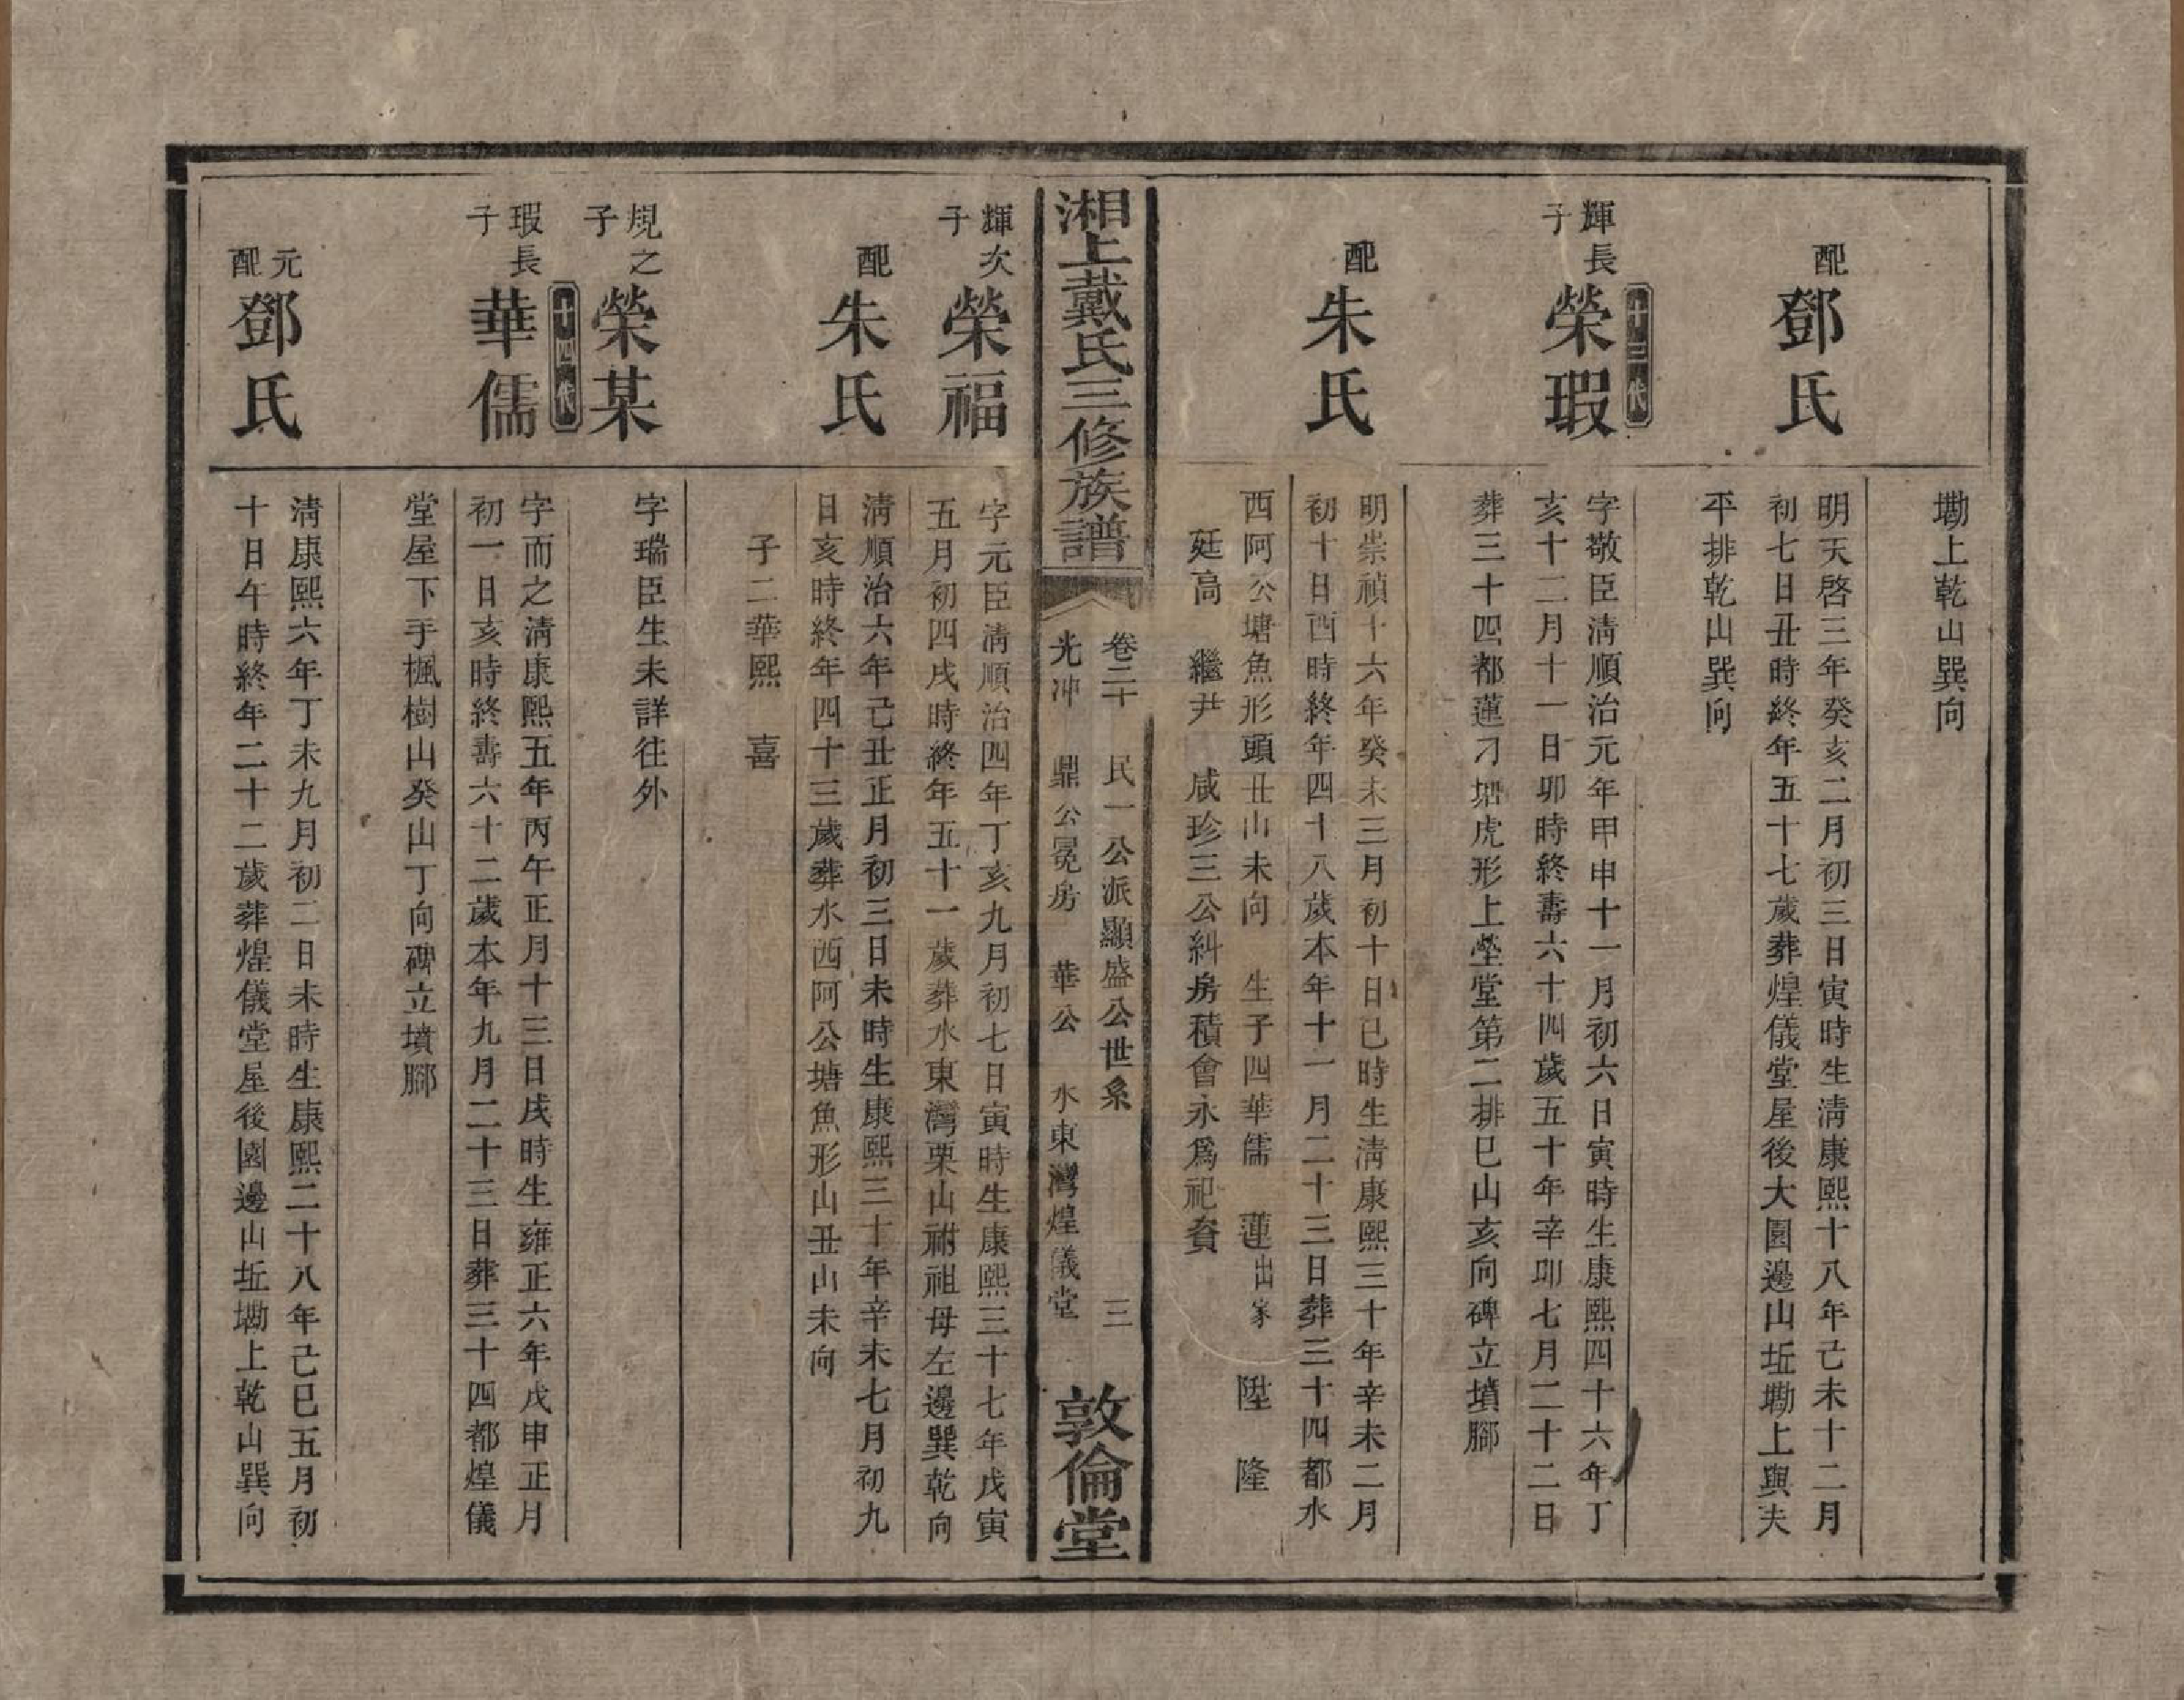 墈上乾山巽向
配
鄧氏
明天啓三年癸亥二月初三日寅時生淸康熙十八年己未十二月
初七日丑時終年五十七歲葬煌儀堂屋後大園邊山坵墈上與夫
平排乾山巽向
十三代
輝長
子
榮瑕
字敬臣淸順治元年甲申十一月初六日寅時生康熙四十六年丁
亥十二月十一日卯時終壽六十四歲五十年辛卯七月二十二日
葬三十四都蓮刁塘虎形上塋堂第二排巳山亥向碑立墳腳
配
朱氏
明崇禎十六年癸未三月初十日巳時生淸康熙三十年辛未二月
初十日酉時終年四十八歲本年十一月二十三日葬三十四都水
西阿公塘魚形頭丑山未向 生子四華儒 蓮出家 陞 隆
廷高 繼尹 咸珍三公糾房積會永爲祀資
湘上戴氏三修族譜
卷二十 民一公派顯盛公世系 三
光冲 鼎公冕房 華公 水東灣煌儀堂
敦倫堂
輝次
子
榮福
字元臣淸順治四年丁亥九月初七日寅時生康熙三十七年戊寅
五月初四戌時終年五十一歲葬水東灣栗山祔祖母左邊巽乾向
配
朱氏
淸順治六年己丑正月初三日未時生康熙三十年辛未七月初九
日亥時終年四十三歲葬水西阿公塘魚形山丑山未向
子二華熙 喜
規之
子
榮某
字瑞臣生未詳往外
十四代
瑕長
子
華儒
字而之淸康熙五年丙午正月十三日戌時生雍正六年戊申正月
初一日亥時終壽六十二歲本年九月二十三日葬三十四都煌儀
堂屋下手楓樹山癸山丁向碑立墳腳
元
配
鄧氏
淸康熙六年丁未九月初二日未時生康熙二十八年己巳五月初
十日午時終年二十二歲葬煌儀堂屋後園邊山坵墈上乾山巽向